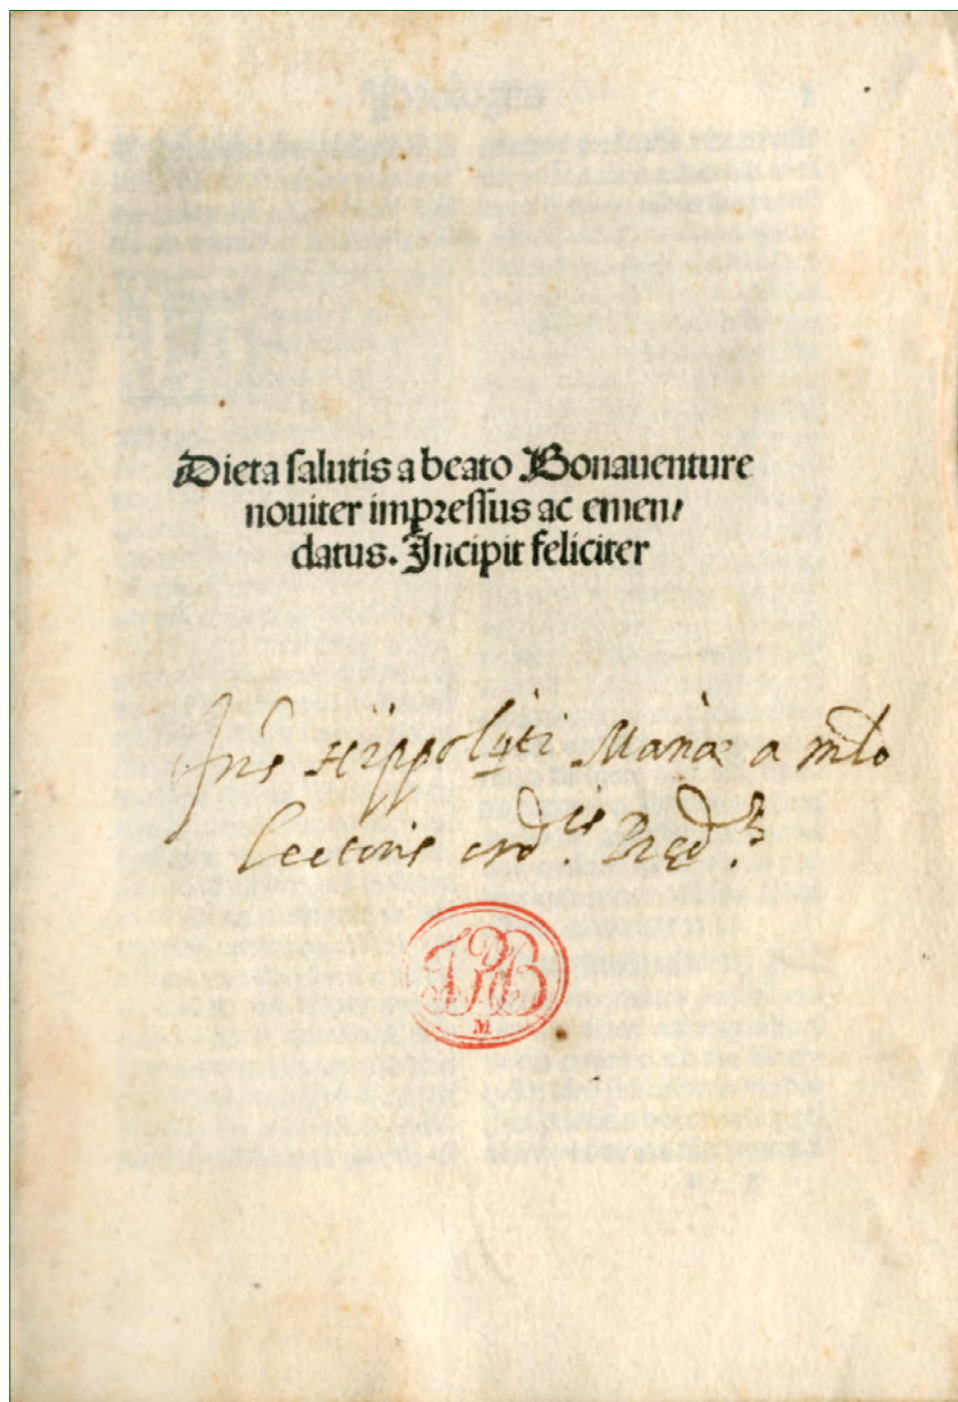 Dieta salutis a beato Bonauenture
nouiter impressus ac emen/
datus. Incipit feliciter
Hippolyti Mariæ a
Lectoris ord.is Pręd.
M